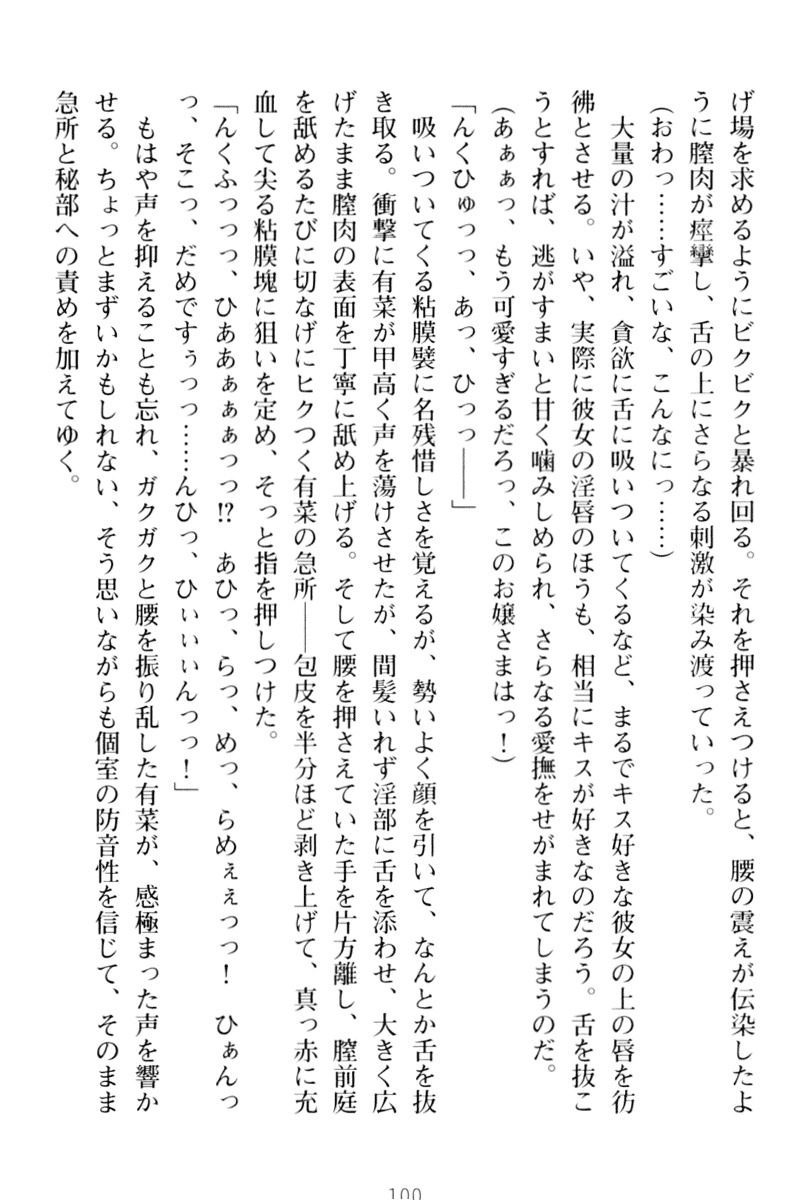 げ場を求めるようにビクビクと暴れ回る。それを押さえつけると、腰の震えが伝染したよ
うに膣肉が痙攣し、舌の上にさらなる刺激が染み渡っていった。
(おわっ……すごいな、こんなにっ……)
大量の汁が溢れ、貪欲に舌に吸いついてくるなど、まるでキス好きな彼女の上の唇を彷
彿とさせる。いや、実際に彼女の淫唇のほうも、相当にキスが好きなのだろう。舌を抜こ
うとすれば、逃がすまいと甘く噛みしめられ、さらなる愛撫をせがまれてしまうのだ。
(あぁぁっ、もう可愛すぎるだろっ、このお嬢さまはっ！)
「んくひゅっっ、あっ、ひっっ――」
吸いついてくる粘膜襞に名残惜しさを覚えるが、勢いよく顔を引いて、なんとか舌を抜
き取る。衝撃に有菜が甲高く声を蕩けさせたが、間髪いれず淫部に舌を添わせ、大きく広
げたまま膣肉の表面を丁寧に舐め上げる。そして腰を押さえていた手を片方離し、膣前庭
を舐めるたびに切なげにヒクつく有菜の急所――包皮を半分ほど剥き上げて、真っ赤に充
血して尖る粘膜塊に狙いを定め、そっと指を押しつけた。
「んくふっっっ、ひああぁぁぁっっ!?　あひっ、らっ、めっ、らめぇぇっっ！　ひぁんっ
っ、そこっ、だめですぅっっ……んひっ、ひぃぃぃんっっ！」
もはや声を抑えることも忘れ、ガクガクと腰を振り乱した有菜が、感極まった声を響か
せる。ちょっとまずいかもしれない、そう思いながらも個室の防音性を信じて、そのまま
急所と秘部への責めを加えてゆく。
100